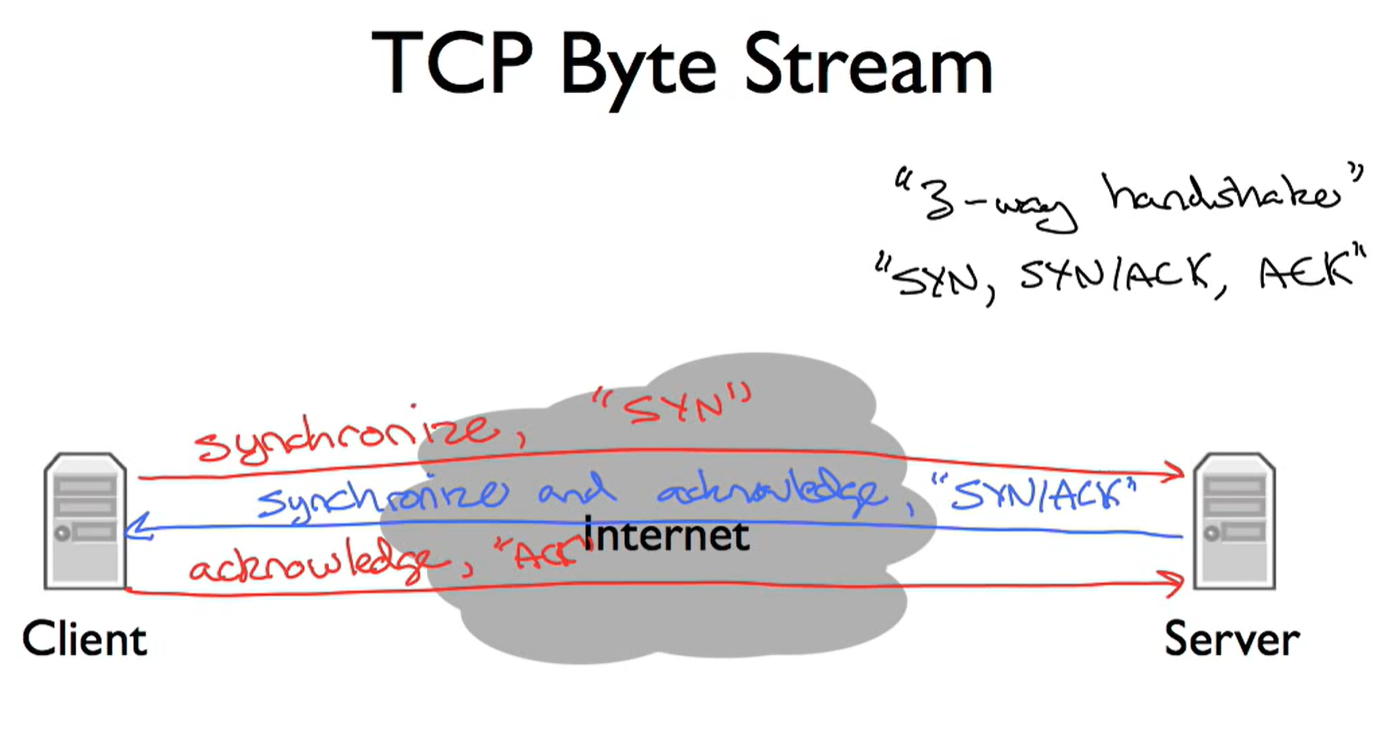 TCP Byte Stream
“3-way handshake”
“SYN, SYN/ACK, ACK”
synchronize, “SYN”
synchronize and acknowledge, “SYN/ACK”
Internet
acknowledge, “ACK”
Client
Server